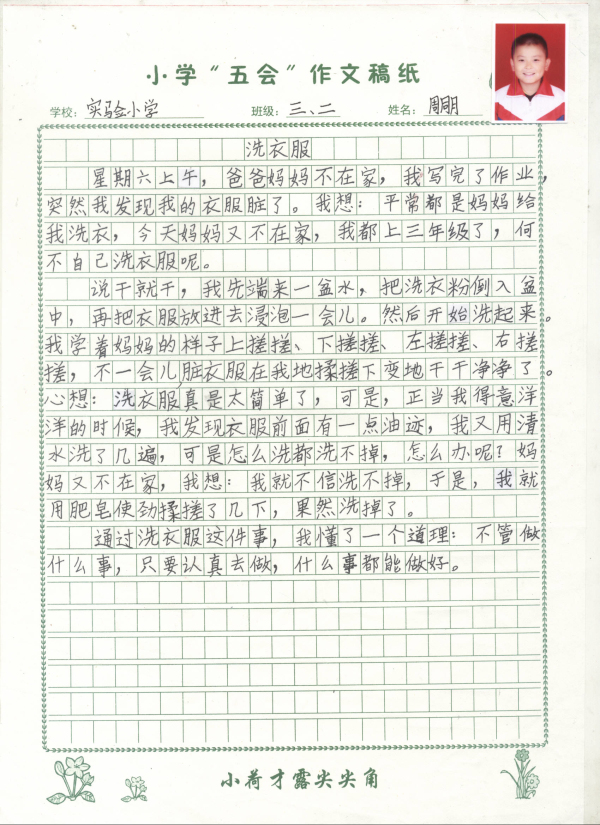 小学“五会”作文稿纸
学校：实验小学 班级：三、二 姓名：周明
洗衣服
星期六上午，爸爸妈妈不在家，我写完了作业，
突然我发现我的衣服脏了。我想：平常都是妈妈给
我洗衣，今天妈妈又不在家，我都上三年级了，何
不自己洗衣服呢。
说干就干，我先端来一盆水，把洗衣粉倒入盆
中，再把衣服放进去浸泡一会儿。然后开始洗起来。
我学着妈妈的样子上搓搓、下搓搓、左搓搓、右搓
搓，不一会儿，脏衣服在我地揉搓下变地干干净净了。
心想：洗衣服真是太简单了，可是，正当我得意洋
洋的时候，我发现衣服前面有一点油迹，我又用清
水洗了几遍，可是怎么洗都洗不掉，怎么办呢？妈
妈又不在家，我想：我就不信洗不掉，于是，我就
用肥皂使劲揉搓了几下，果然洗掉了。
通过洗衣服这件事，我懂了一个道理：不管做
什么事，只要认真去做，什么事都能做好。
小荷才露尖尖角